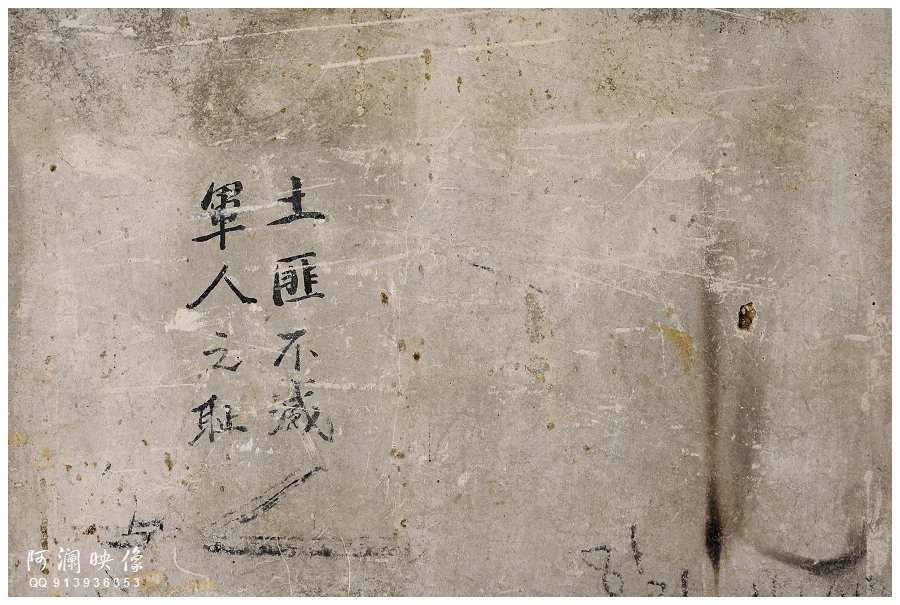 土匪不滅
軍人之恥
阿澜映像
QQ 913936353